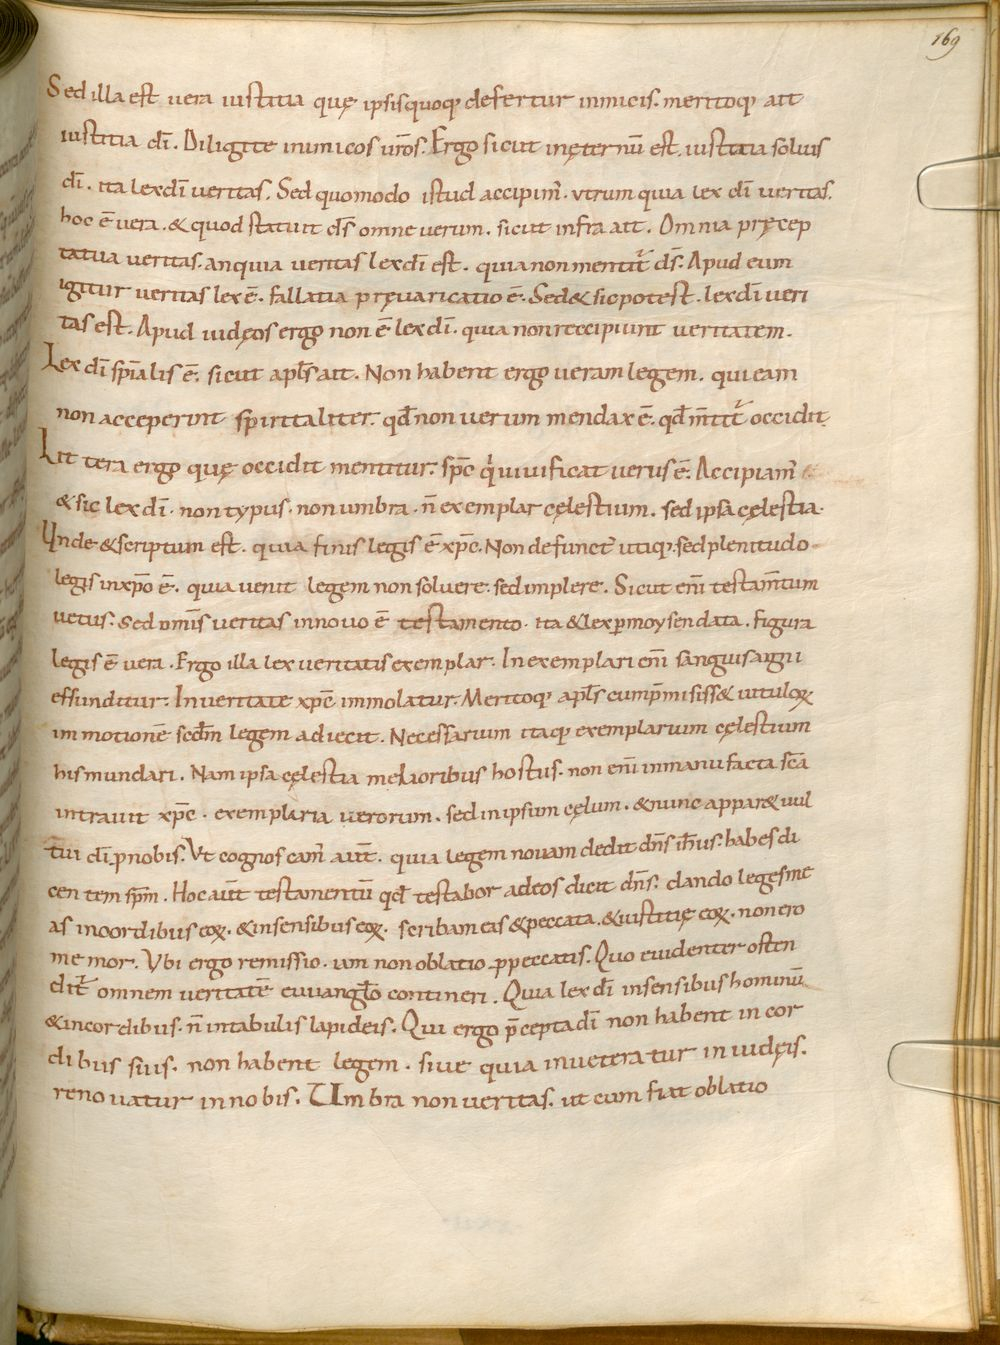 169
Sed illa est vera iustitia quę ipsis quoq; defertur inimicis. meritoq; ait
iustitia dī. Diligite inimicos ur̄os. Ergo sicut in ęternū est. iustitia solius
dī. ita lex dī veritas. Sed quomodo istud accipim̄. vtrum quia lex dī veritas.
hoc ē vera. & quod statuit ds̄ omne verum. sicut infra ait. Omnia pręcep
ta tua veritas. an quia veritas lex dī est. quia non mentit̄ ds̄. Apud eum
igitur veritas lex ē. fallatia pręvaricatio ē. Sed & sic potest. lex dī veri
tas est. Apud iudęos ergo non ē lex dī. quia non recipiunt veritatem.
Lex dī sp̄ialis ē. sicut apl̄s ait. Non habent ergo veram legem. qui eam
non acceperunt spiritaliter. qd̄ non verum mendax ē. qd̄ m̄tit̄ occidit.
Littera ergo quę occidit mentitur. sp̄c q̇ vivificat verus ē. Accipiam̄
& sic lex dī. non typus. non umbra. n̄ exemplar cęlestium. sed ipsa cęlestia.
Unde & scriptum est. quia finis legis ē xp̄c. Non defunct̄ utiq;. sed plenitudo
legis in xp̄o ē. quia venit legem non solvere. sed implere. Sicut em̄ testam̄tum
vetus. Sed om̄is veritas in novo ē testamento. ita & lex p̱ moysen data. figura
legis ē vera. Ergo illa lex veritatis exemplar. In exemplari em̄ sanguis agni
effunditur. In veritate xp̄c immolatur. Meritoq; apl̄s cum p̄misiss& vituloꝝ
immotionē scd̄m legem adiecit. Necessarium itaq; exemplarium cęlestium
his mundari. Nam ipsa cęlestia melioribus hostiis. non em̄ in manu facta sc̄a
intravit xp̄c. exemplaria verorum. sed in ipsum cęlum. & nunc appar& vul
tui dī. p̱ nobis. Vt cognoscam̄ aut̄. quia legem novam dedit dn̄s ih̄us. habes di
centem sp̄m. Hoc aut̄ testamentū qd̄ testabor ad eos dicit dn̄s. dando leges me
as in cordibus eoꝝ. & in sensibus eoꝝ. scribam eis & peccata. & iustitię eoꝝ. non ero
memor. Vbi ergo remissio. iam non oblatio p̱ peccatis. Quo evidenter osten
dit̄ omnem veritatē euuangl̄o contineri. Quia lex dī in sensibus hominū
& in cordibus. n̄ in tabulis lapideis. Qui ergo p̄cepta dī non habent in cor
dibus suis. non habent legem. sive quia inveteratur in iudęis.
renovatur in nobis. Umbra non veritas. ut cum fiat oblatio